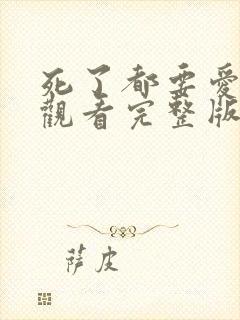 死了都要爱
觀看完整版
萨皮